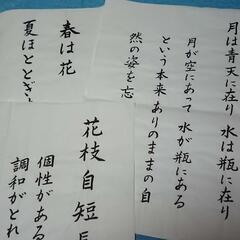 月は青天に在り 水は瓶に在り
月が空にあって 水が瓶にある
という本来ありのままの自
然の姿を忘
春は花
夏ほととぎ
花枝自短長
個性がある
調和がとれ